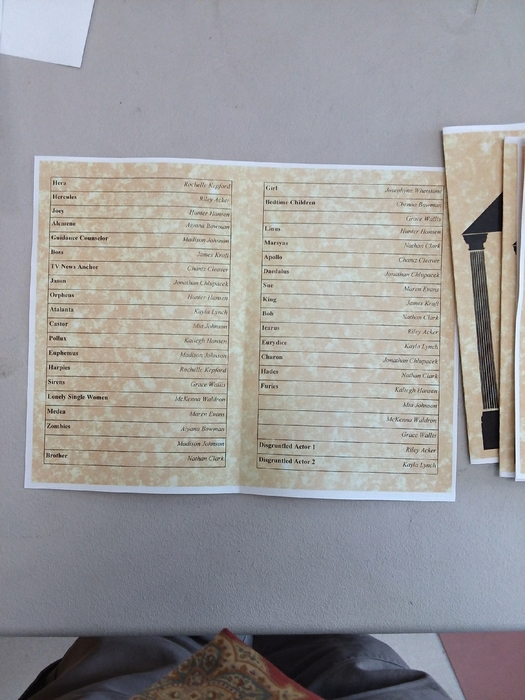 Hera Rochelle Kipford
Hercules Riley Acker
Joey Hunter Hansen
Alcmene Aiyana Bowman
Guidance Counselor Madison Johnson
Boss James Kraft
TV News Anchor Chantz Cleaver
Jason Jonathan Chlupacek
Orpheus Hunter Hansen
Atalanta Kayla Lynch
Castor Mia Johnson
Pollux Kaliegh Hansen
Euphemus Madison Johnson
Harpies Rochelle Kipford
Sirens Grace Wallis
Lonely Single Women McKenna Waldron
Medea Maren Evans
Zombies Aiyana Bowman
Madison Johnson
Brother Nathan Clark
Girl Josephyne
Bedtime Children Bowman
Grace Wallis
Linus Hunter Hansen
Marsyas Nathan Clark
Apollo Chantz Cleaver
Daedalus Jonathan Chlupacek
Sue Maren Evans
King James Kraft
Bob Nathan Clark
Icarus Riley Acker
Eurydice Kayla Lynch
Charon Jonathan Chlupacek
Hades Nathan Clark
Furies Kaliegh Hansen
Mia Johnson
McKenna Waldron
Grace Wallis
Disgruntled Actor 1 Riley Acker
Disgruntled Actor 2 Kayla Lynch